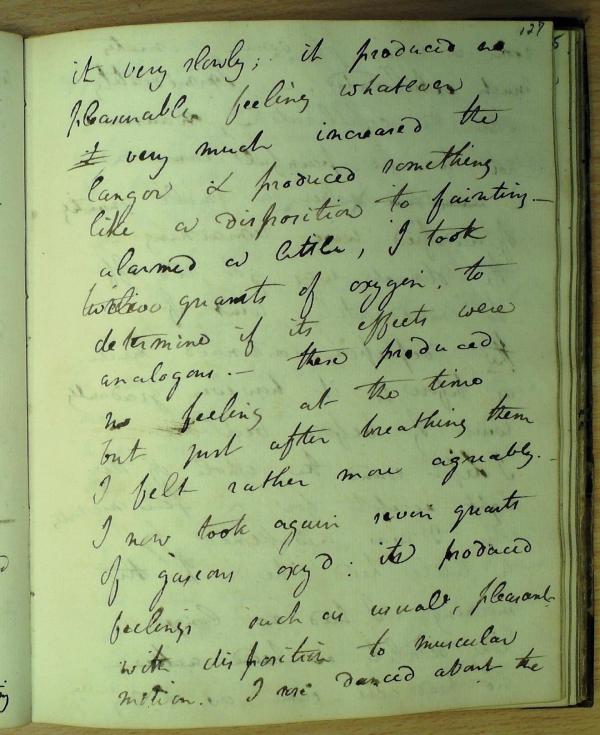 127
it very slowly; it produced no
pleasurable feeling whatever
& very much increased the
langor & produced something
like a disposition to fainting –
alarmed a little, I took
twelve quarts of oxygen, to
determine if its effects were
analogous. – these produced
no feeling at the time
but just after breathing them
I felt rather more agreably. –
I now took again seven quarts
of gaseous oxyd: it produced
feelings such as usual, pleasant
with disposition to muscular
motion. I rose danced about the